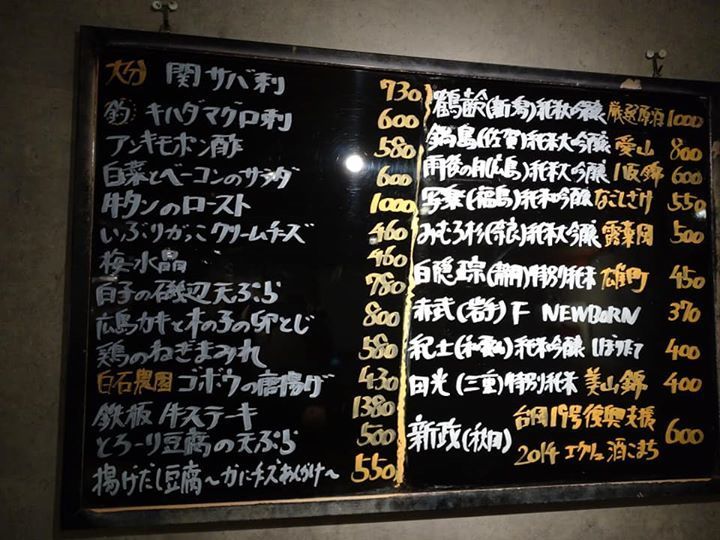 大分 関サバ刺 730
釣 キハダマグロ刺 600
アンキモポン酢 580
白菜とベーコンのサラダ 600
牛タンのロースト 1000
いぶりがっこクリームチーズ 460
梅水晶 460
白子の磯辺天ぷら 780
広島カキと木の子の卵とじ 800
鶏のねぎまみれ 580
白石農園 ゴボウの唐揚げ 430
鉄板牛ステーキ 1380
とろーり豆腐の天ぷら 500
揚げだし豆腐〜かにチーズあんかけ〜 550
鶴齢(新潟)純米吟醸 1000
鍋島(佐賀)純米大吟醸 愛山 800
雨後の月(広島)純米大吟醸 600
写楽(福島)純米吟醸 なごしざけ 550
みむろ杉(奈良)純米吟醸 露葉風 500
白隠正宗(静岡)特別純米 雄町 450
赤武(岩手) F NEWBORN 370
紀土(和歌山)純米吟醸 しぼりたて 400
田光(三重)特別純米 美山錦 400
新政(秋田) 台風19号復興支援
2014 エクリュ 酒こまち 600